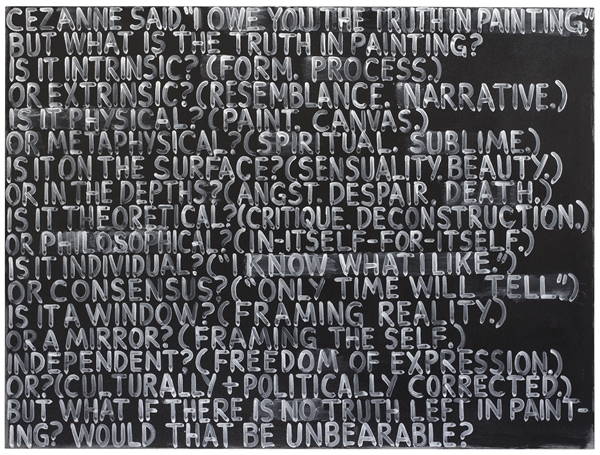 CEZANNE SAID,"I OWE YOU THE TRUTH IN PAINTING."
BUT WHAT IS THE TRUTH IN PAINTING?
IS IT INTRINSIC? (FORM. PROCESS.)
OR EXTRINSIC? (RESEMBLANCE. NARRATIVE.)
IS IT PHYSICAL? (PAINT. CANVAS.)
OR METAPHYSICAL? (SPIRITUAL. SUBLIME.)
IS IT ON THE SURFACE? (SENSUALITY. BEAUTY.)
OR IN THE DEPTHS? (ANGST. DESPAIR. DEATH.)
IS IT THEORETICAL? (CRITIQUE. DECONSTRUCTION.)
OR PHILOSOPHICAL? (IN-ITSELF-FOR-ITSELF.)
IS IT INDIVIDUAL? ("I KNOW WHAT I LIKE.")
OR CONSENSUS? ("ONLY TIME WILL TELL")
IS IT A WINDOW? (FRAMING REALITY.)
OR A MIRROR? (FRAMING THE SELF.)
INDEPENDENT? (FREEDOM OF EXPRESSION.)
OR? (CULTURALLY + POLITICALLY CORRECTED.)
BUT WHAT IF THERE IS NO TRUTH LEFT IN PAINT-
ING? WOULD THAT BE UNBEARABLE?